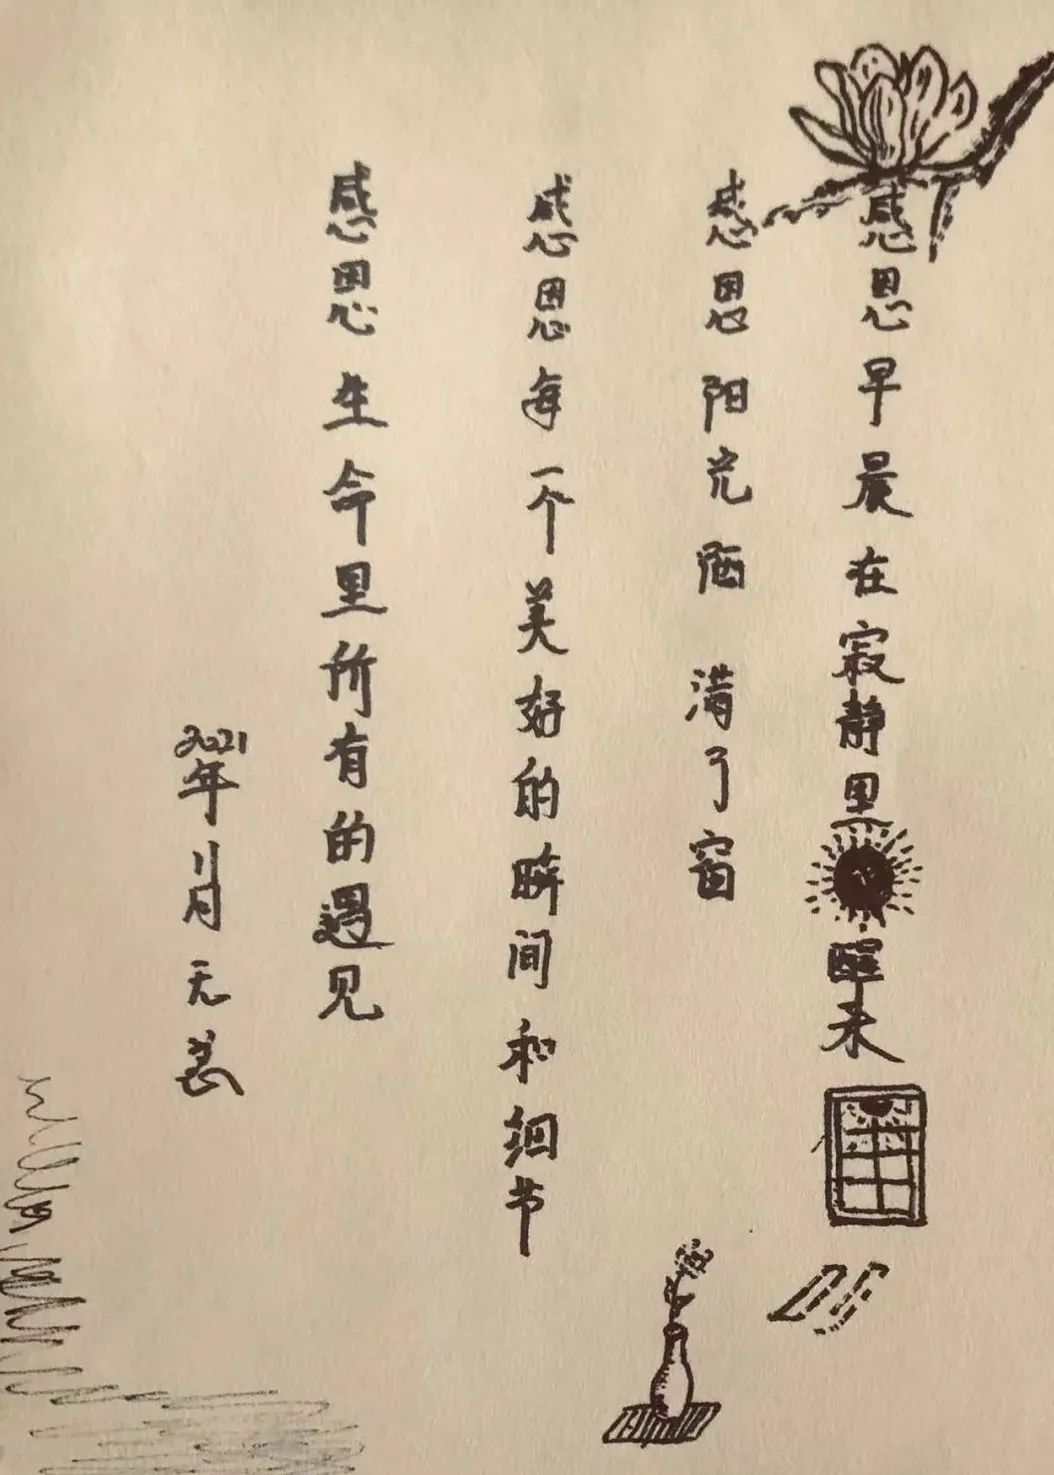 感恩早晨在寂静里醒来
感恩阳光洒满了窗
感恩每一个美好的瞬间和细节
感恩生命里所有的遇见
2021年11月无恙